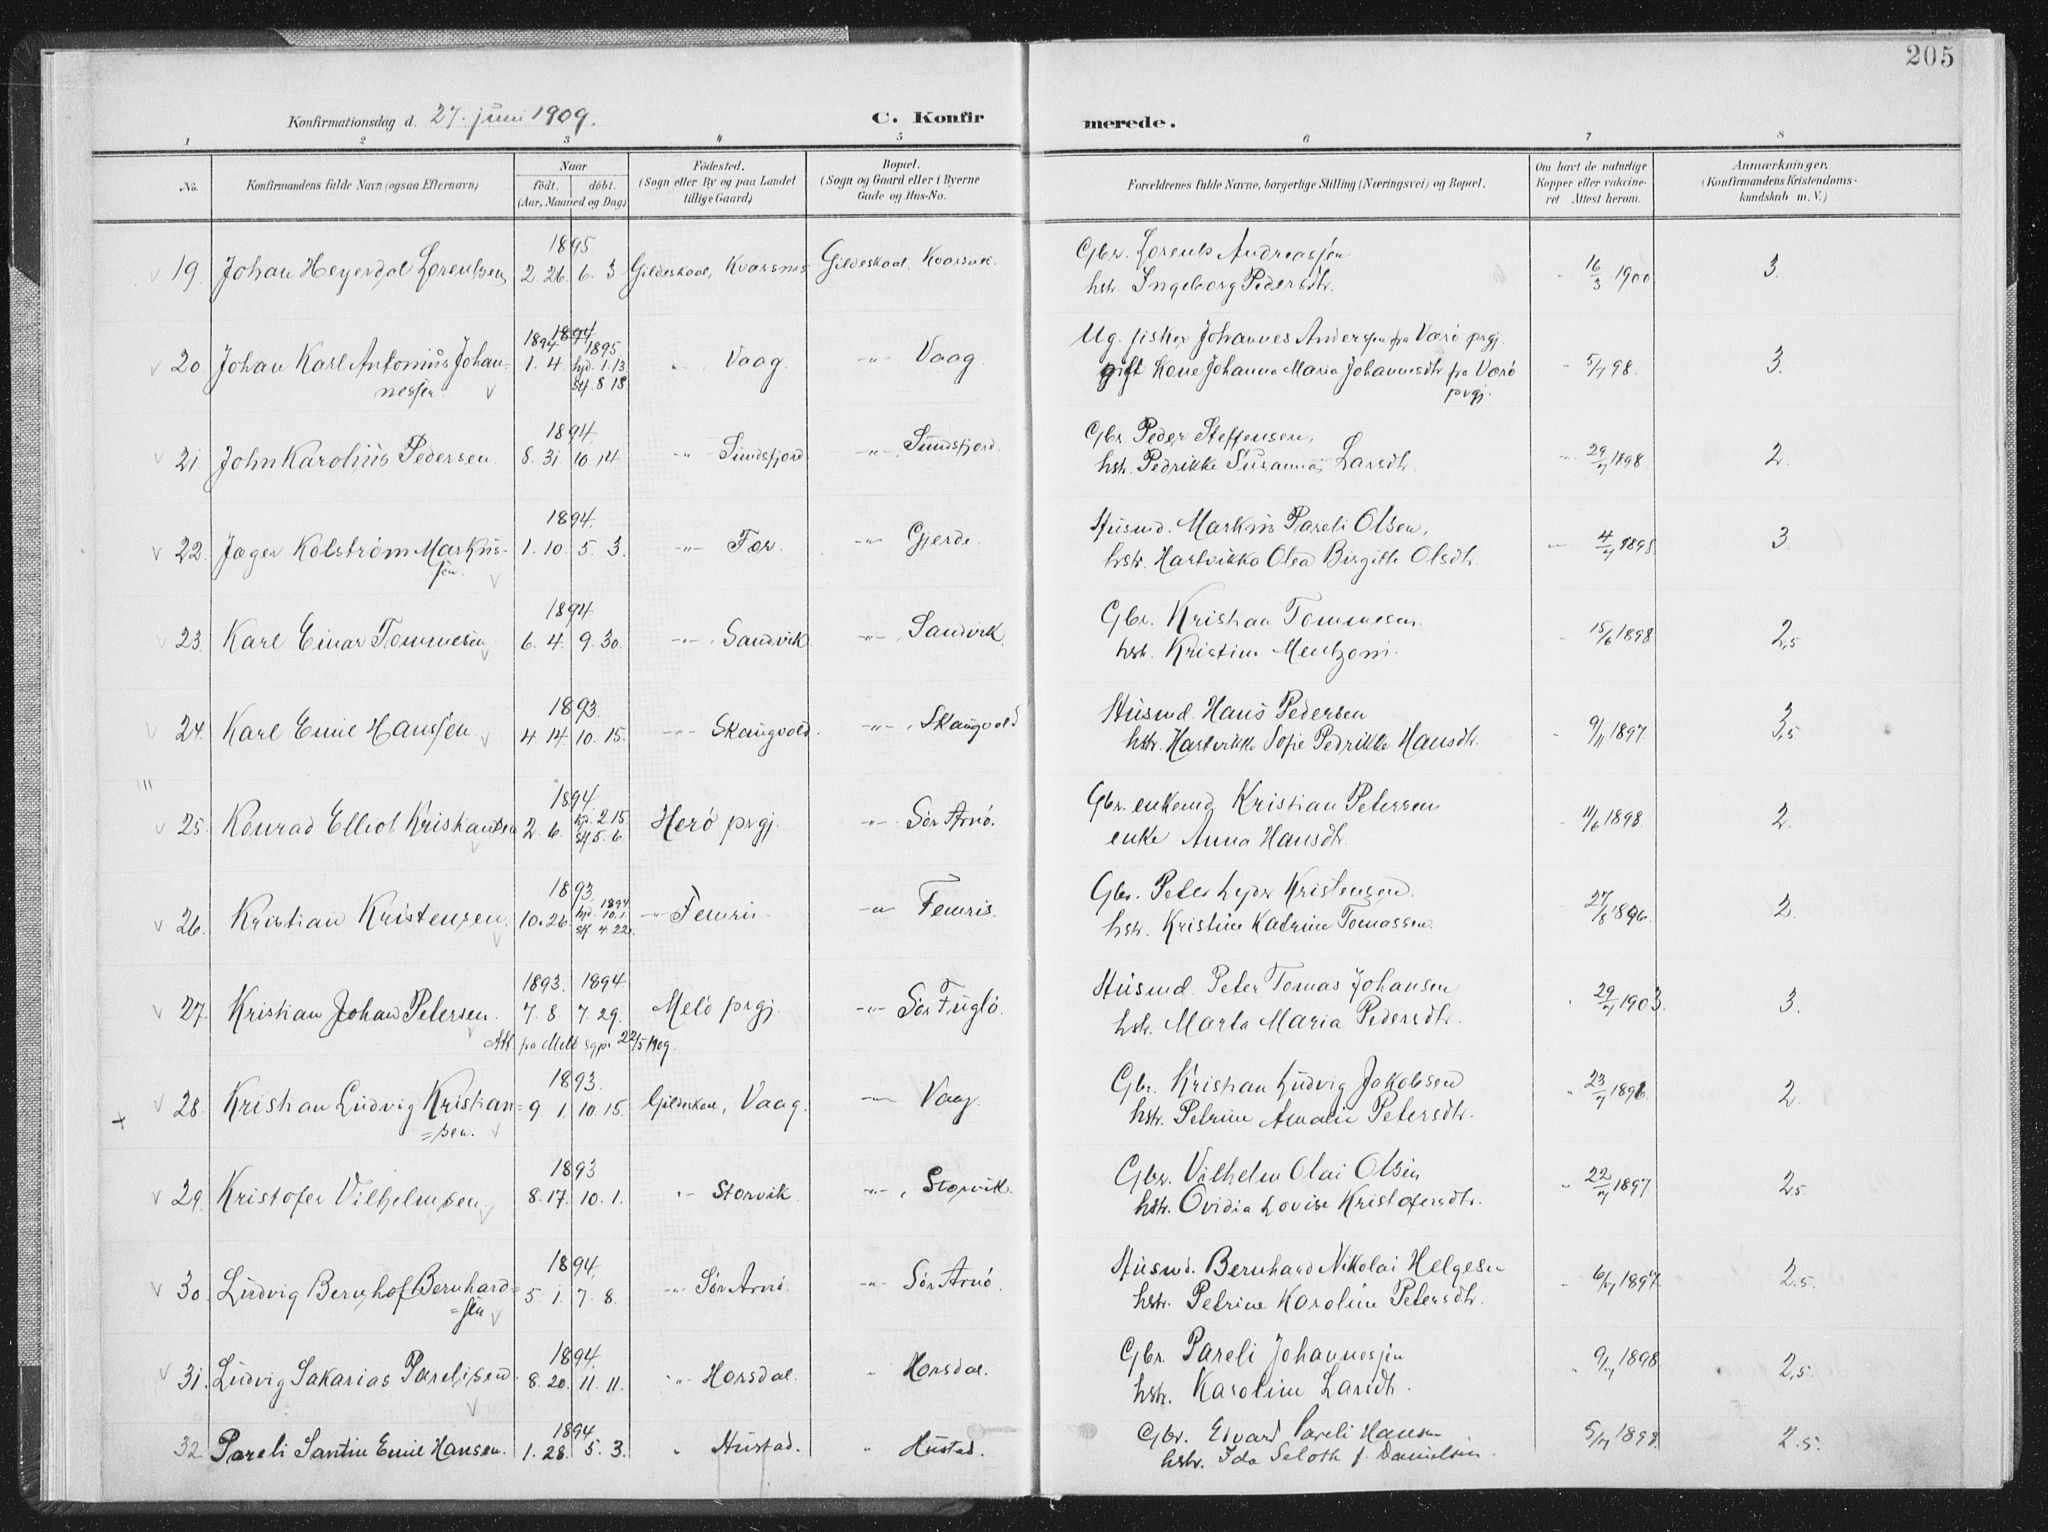 205
Konfirmationsdag d. 27. juni 1909.
C. Konfir merede.
1 2 3 4 5 6 7 8
No. Konfirmandens fulde Navn (ogsaa Efternavn) Naar födt. döbt. (Aar, Maaned og Dag) Födested. (Sogn eller By og paa Landet tillige Gaard) Bopæl. (Sogn og Gaard eller i Byerne Gade og Hus-No. Forældrenes fulde Navne, borgerlige Stilling (Næringsvei) og Bopæl. Om havt de naturlige Kopper eller vakcineret Attest herom. Anmærkninger. (Konfirmandens Kristendomskundskab m. V.)
1895 Gbr. Lorents Andreassen
19. Johan Heyerdal Lorentsen 2 26. 6. 3 Gildeskaal, Kvarsnes Gildeskaal, Kvarsnes. hstr. Ingeborg Pedersdtr. 16/3 1900 3.
1894 1895 Ug. fisker Johannes Anderssen fra Værö prgj.
20 Johan Karl Antonius Johannessen 1. 4. hjd. 1. 13 kf. 8. 18 " Vaag. -"- Vaag. gift Kone Johanna Maria Johannesdtr fra Værö prgj. 5/7 98. 3.
1894 Gbr. Peder Steffensen,
21. John Karolius Pedersen 8. 31 10. 14 -"- Sundsfjord -"- Sundsfjord. hstr. Pedrikke Susanna Larsdtr. 29/7 1898 2.
1894. Husmd. Markus Pareli Olsen,
22. Jæger Kolstrøm Markussen. 1. 10. 5. 3. -"- Fær. -"- Gjerde. hstr. Hartvikka Olea Birgitte Olsdtr. 4/7 1898 3.
1894 Gbr. Kristian Tommesen
23. Karl Einar Tommesen 6. 4. 9. 30. -"- Sandvik -"- Sandvik. hstr. Kristine Mentzoni. 15/6 1898 2,5
1893. Husmd. Hans Pedersen
24. Karl Emil Hanssen 4. 14. 10. 15. -"- Skaugvold. -"- Skaugvold hstr. Hartvikke Sofie Pedrikke Hansdtr. 9/11 1897. 3,5
1894. Gbr. enkemd. Kristian Petersen
25. Konrad Elliot Kristiansen 2. 6. hjd. 2. 15. kf. 5. 6. Herö prgj. -"- Sör Arnö. enke Anna Hansdtr. 11/6 1898. 2.
1893 1894 Gbr. Peter Lyder Kristensen
26. Kristian Kristensen 10. 26. hjd. 10. 1. kf. 4. 22. -"- Femris -"- Femris. hstr. Kristine Katrine Tomassen. 27/8 1896. 2.
1893. 1894 Husmd. Peter Tomas Johansen
27. Kristian Johan Petersen. 7. 8. 7. 29. Melö prgj. -"- Sör Fuglö. hstr. Marta Maria Pedersdtr. 29/7 1903. 3.
Att. fra Melö sgpr. 22/5 1909.
1893. Gbr. Kristian Ludvig Jakobsen
28. Kristian Ludvig Kristiansen. 9 1. 10. 15. Gildeskaal, Vaag. -"- Vaag. hstr. Petrine Amalie Petersdtr. 23/7 1896 2.
1893 Gbr. Vilhelm Olai Olsen
29. Kristofer Vilhelmsen 8. 17. 10. 1. " Storvik -"- Storvik. hstr. Ovidia Lovise Kristofersdtr. 22/7 1897 2,5.
1894. Husmd. Bernhard Nikolai Helgesen
30. Ludvig Bernhof Bernhardsen 5. 1. 7. 8. -"- Sör Arnö -"- Sör Arnö. hstr. Petrine Karoline Petersdtr. 6/7 1897. 2.5.
1894. Gbr. Pareli Johannessen
31. Ludvig Sakarias Parelisen 8. 20. 11. 11. " Horsdal. " Horsdal. hstr. Karoline Larsdtr. 9/7 1898 2,5.
1894 Gbr. Edvard Pareli Hansen
32 Pareli Santin Emil Hansen. 1. 28. 5. 3. " Hustad. " Hustad. hstr. Ida Seloth f. Danielsen. 5/7 1898. 2.5.